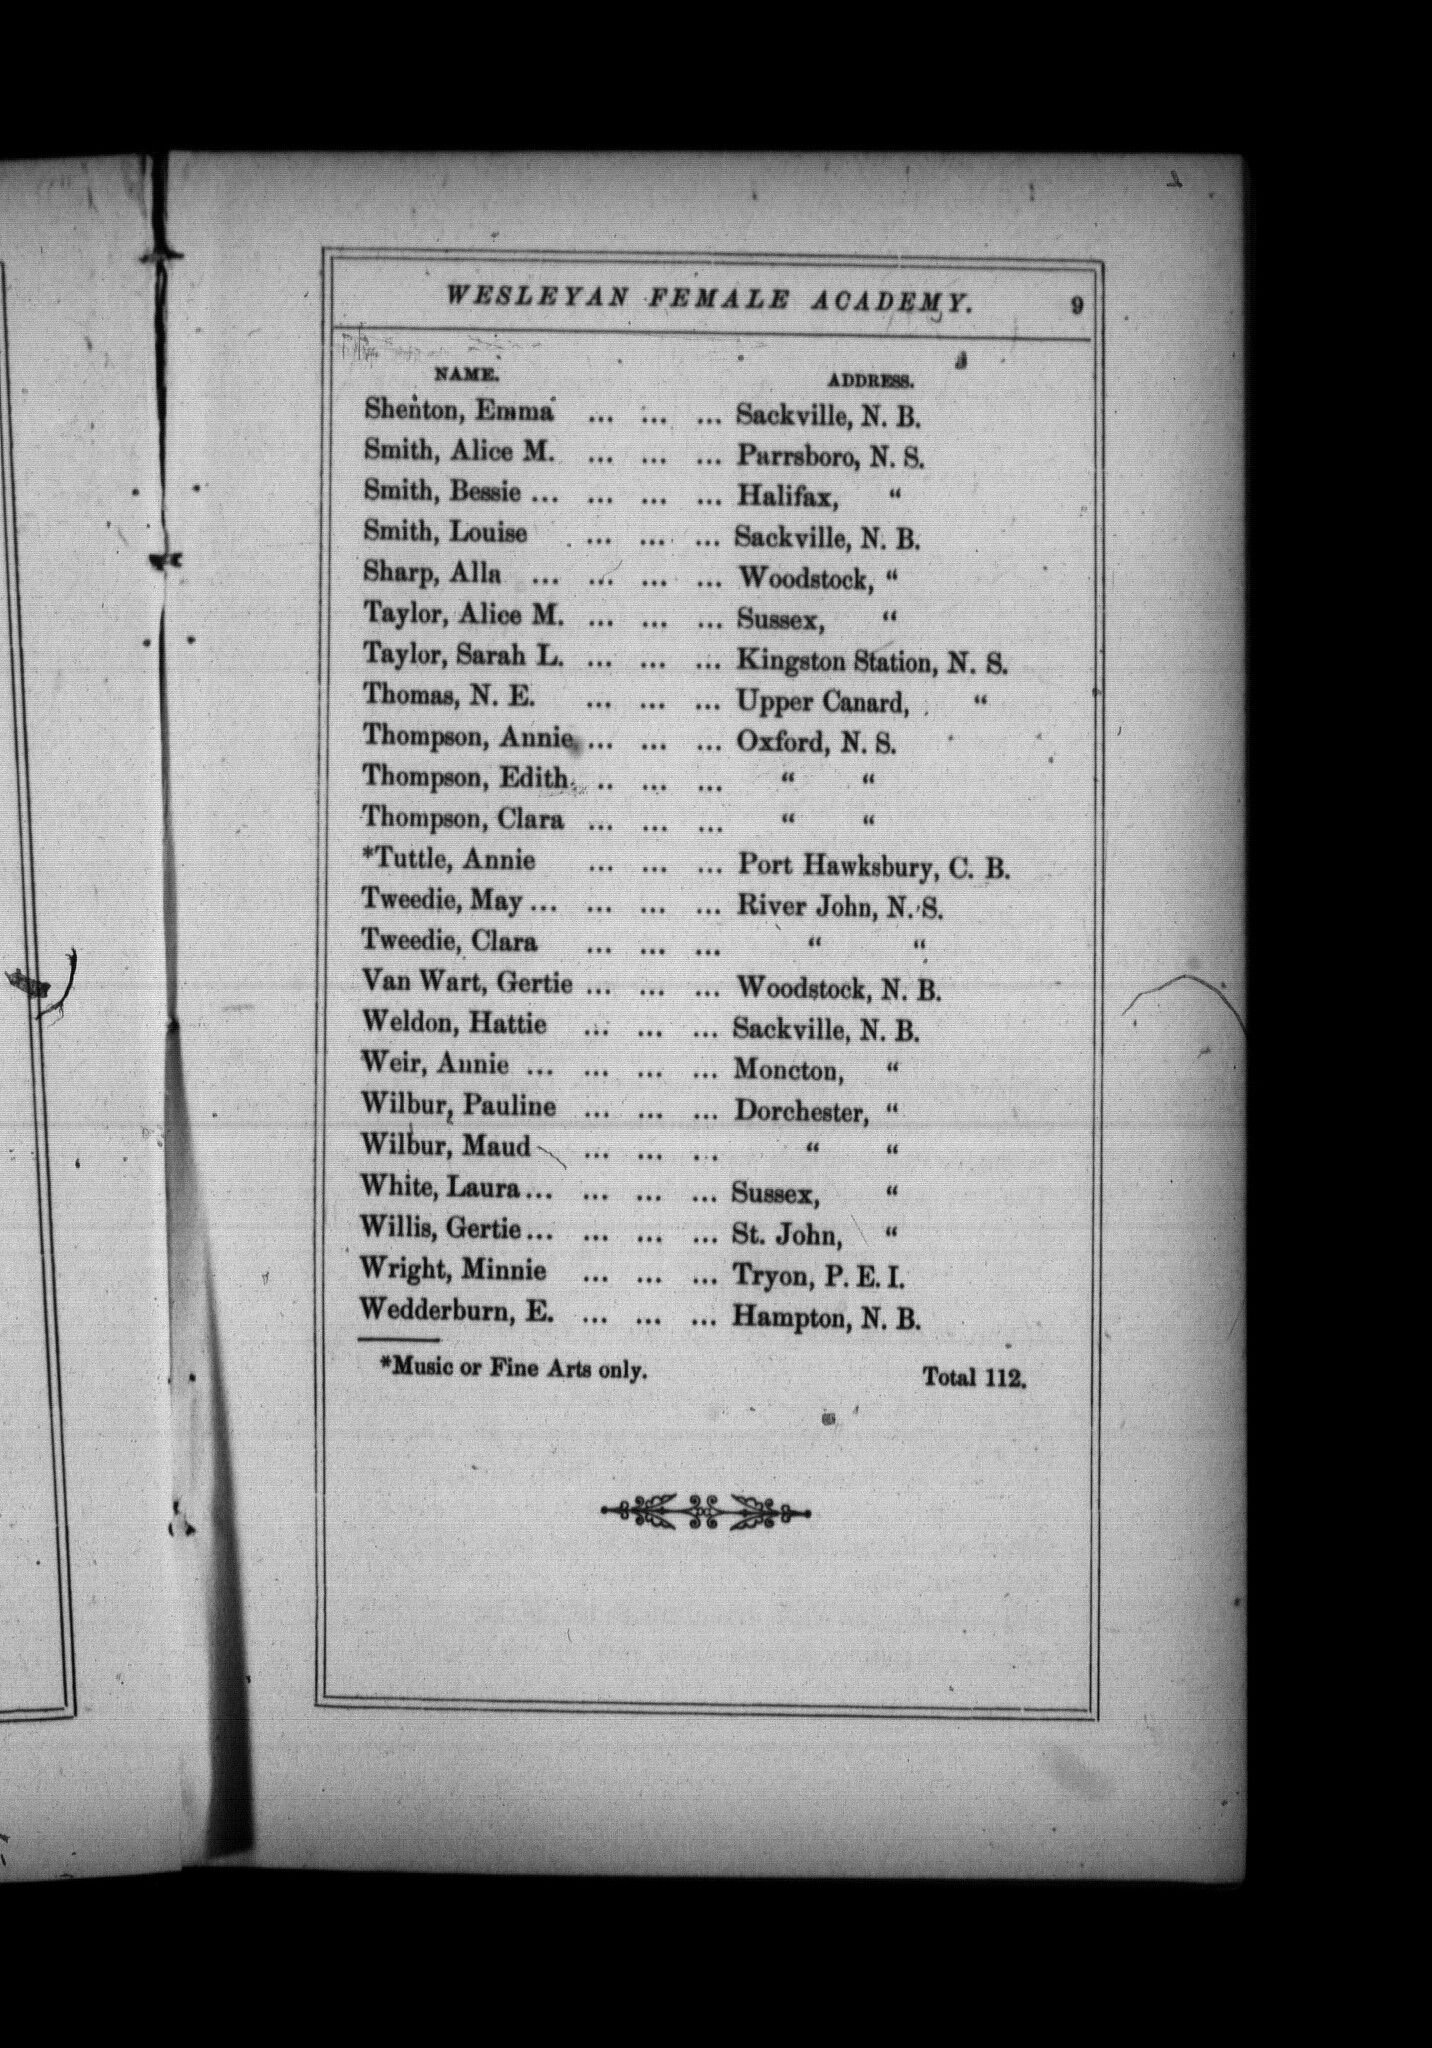 WESLEYAN FEMALE ACADEMY. 9
NAME. ADDRESS.
Shenton, Emma ... ... ... Sackville, N. B.
Smith, Alice M. ... ... ... Parrsboro, N. S.
Smith, Bessie ... ... ... ... Halifax, “
Smith, Louise ... ... ... Sackville, N. B.
Sharp, Alla ... ... ... ... Woodstock, “
Taylor, Alice M. ... ... ... Sussex, “
Taylor, Sarah L. ... ... ... Kingston Station, N. S.
Thomas, N. E. ... ... ... Upper Canard, “
Thompson, Annie ... ... ... Oxford, N. S.
Thompson, Edith .. ... ... “ “
Thompson, Clara ... ... ... “ “
*Tuttle, Annie ... ... ... Port Hawksbury, C. B.
Tweedie, May ... ... ... ... River John, N. S.
Tweedie, Clara ... ... ... “ “
Van Wart, Gertie ... ... ... Woodstock, N. B.
Weldon, Hattie ... ... ... Sackville, N. B.
Weir, Annie ... ... ... ... Moncton, “
Wilbur, Pauline ... ... ... Dorchester, “
Wilbur, Maud ... ... ... “ “
White, Laura ... ... ... ... Sussex, “
Willis, Gertie ... ... ... ... St. John, “
Wright, Minnie ... ... ... Tryon, P. E. I.
Wedderburn, E. ... ... ... Hampton, N. B.
*Music or Fine Arts only. Total 112.